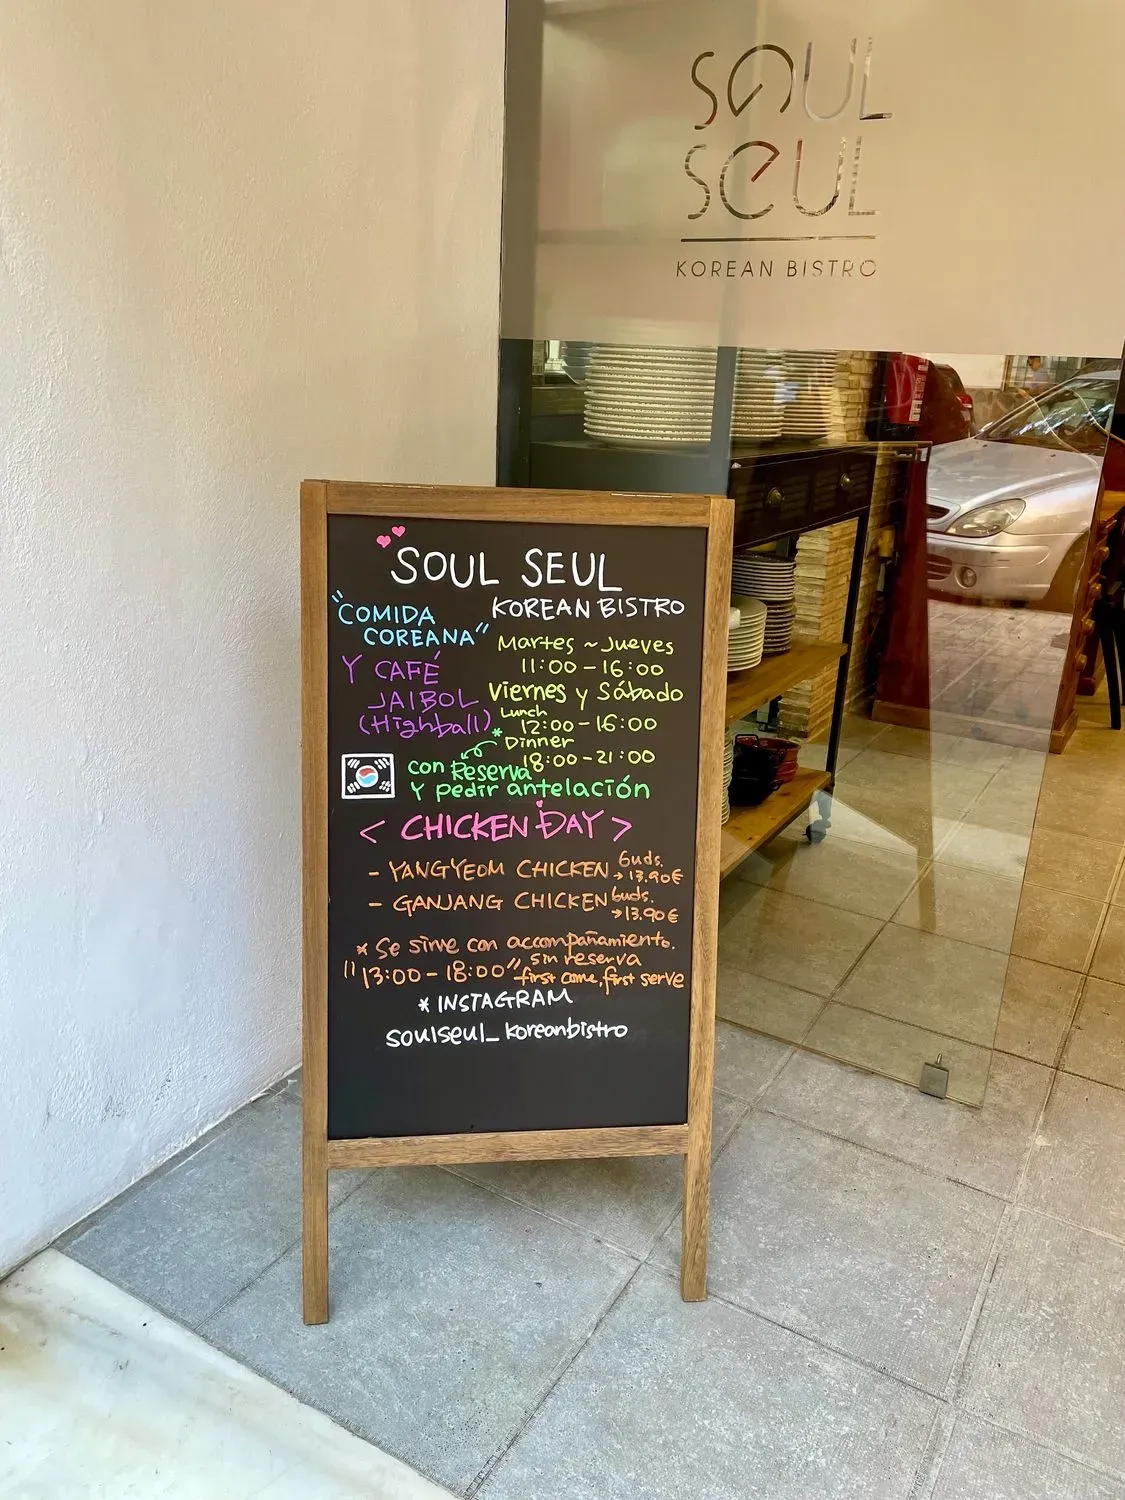 SOUL
SEUL
KOREAN BISTRO
SOUL SEUL
KOREAN BISTRO
"COMIDA
COREANA"
Y CAFÉ
JAIBOL
(Highball)
Martes ~ Jueves
11:00 - 16:00
Viernes y Sábado
Lunch
12:00 - 16:00
* Dinner
18:00 - 21:00
con Reserva
Y pedir antelación
< CHICKEN DAY >
- YANGYEOM CHICKEN 6uds.
→ 13.90€
- GANJANG CHICKEN 6uds.
→ 13.90€
* Se sirve con acompañamiento.
"13:00 - 18:00" sin reserva
first come, first serve
* INSTAGRAM
soulseul_koreanbistro